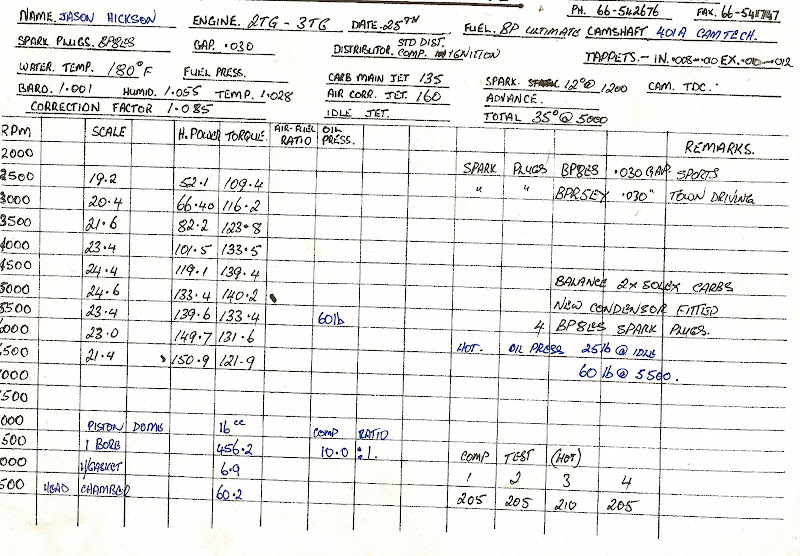 PH. 66-542676 FAX. 66-541747
NAME. JASON HICKSON ENGINE. 2TG - 3TG DATE. 25TH FUEL. BP ULTIMATE CAMSHAFT 401A CAMTECH.
SPARK PLUGS. BP8ES GAP. .030 DISTRIBUTOR. STD DIST. COMP. IGNITION TAPPETS.- IN. .008-.010 EX. .010-.012
WATER. TEMP. 180°F FUEL PRESS. CARB MAIN JET 135 SPARK. 12°@ 1200 CAM. TDC.
BARO. 1.001 HUMID. 1.055 TEMP. 1.028 AIR CORR. JET. 160 ADVANCE.
CORRECTION FACTOR 1.085 IDLE JET. TOTAL 35°@ 5000
RPM SCALE H.POWER TORQUE. AIR-FUEL RATIO OIL PRESS. REMARKS.
2000 SPARK PLUGS BP8ES .030 GAP. SPORTS
2500 19.2 52.1 109.4 " " BPR5EY .030" TOWN DRIVING
3000 20.4 66.40 116.2
3500 21.6 82.2 123.8
4000 23.4 101.5 133.5
4500 24.4 119.1 139.4 BALANCE 2x SOLEX CARBS
5000 24.6 133.4 140.2 NEW CONDENSOR FITTED
5500 23.4 139.6 133.4 60lb 4 BP8ES SPARK PLUGS.
6000 23.0 149.7 131.6 HOT. OIL PRESS 25lb @ IDLE
6500 21.4 150.9 121.9 60 lb @ 5500.
000
500
000 PISTON DOME 16cc COMP RATIO
500 1 BORE 456.2 10.0 :1. COMP TEST (HOT)
000 1/GASKET 6.9 1 2 3 4
500 HEAD CHAMBER 60.2 205 205 210 205